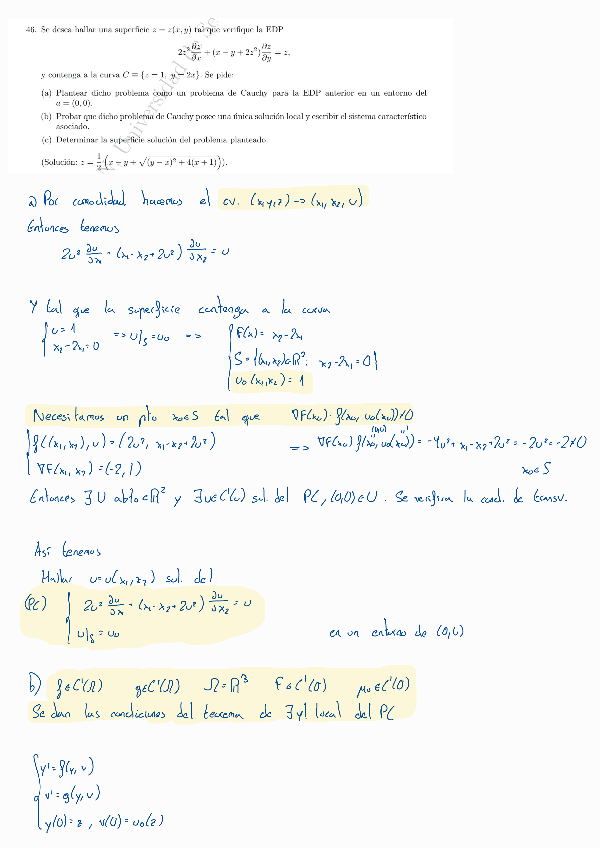 46. Se desea hallar una superficie z = z(x, y) tal que verifique la EDP
2z² ∂z/∂x + (x − y + 2z²) ∂z/∂y = z,
y contenga a la curva C ≡ {z = 1, y = 2x}. Se pide:
(a) Plantear dicho problema como un problema de Cauchy para la EDP anterior en un entorno del
a = (0, 0).
(b) Probar que dicho problema de Cauchy posee una única solución local y escribir el sistema característico
asociado.
(c) Determinar la superficie solución del problema planteado
(Solución: z = 1/2 (x + y + √((y − x)² + 4(x + 1))).
a) Por comodidad hacemos el cv. (x,y,z) -> (x₁, x₂, u)
Entonces tenemos
2u² ∂u/∂x₁ + (x₁ - x₂ + 2u²) ∂u/∂x₂ = u
Y tal que la superficie contenga a la curva
{ u = 1
x₂ - 2x₁ = 0 => u|s = u₀ => { F(x) = x₂ - 2x₁
S = {(x₁, x₂) ∈ ℝ²: x₂ - 2x₁ = 0}
u₀(x₁,x₂) = 1
Necesitamos un pto x₀ ∈ S tal que ∇F(x₀) · f(x₀, u₀(x₀)) ≠ 0
{ f((x₁, x₂), u) = (2u², x₁ - x₂ + 2u²) => ∇F(x₀) f(x₀, u₀(x₀)) = -4u² + x₁ - x₂ + 2u² = -2u² = -2 ≠ 0
(0,0) 1
∇F(x₁, x₂) = (-2, 1) x₀ ∈ S
Entonces ∃ U abto ⊂ ℝ² y ∃ u ∈ C¹(U) sol. del PC, (0,0) ∈ U. Se verifica la cond. de transv.
Así tenemos
Hallar u = u(x₁, x₂) sol. del
(PC) { 2u² ∂u/∂x₁ + (x₁ - x₂ + 2u²) ∂u/∂x₂ = u
u|s = u₀ en un entorno de (0,0)
b) f ∈ C¹(Ω) g ∈ C¹(Ω) Ω = ℝ³ F ∈ C¹(O) μ₀ ∈ C¹(O)
Se dan las condiciones del teorema de ∃ y! local del PC
{ y' = f(y, v)
v' = g(y, v)
y(0) = z, v(0) = u₀(z)